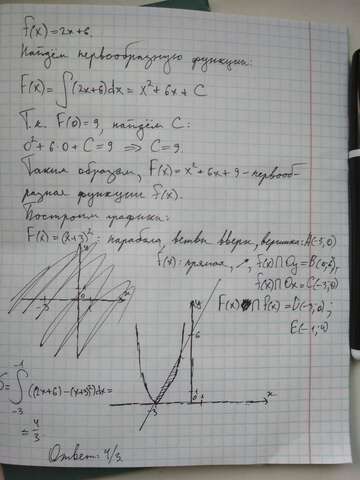 f(x) = 2x+6.
Найдём первообразную функции:
F(x) = ∫(2x+6)dx = x² + 6x + C
Т.к. F(0) = 9, найдём C:
0² + 6·0 + C = 9 ⇒ C = 9.
Таким образом, F(x) = x² + 6x + 9 - первооб-
разная функции f(x).
Построим графики:
F(x) = (x+3)²: парабола, ветви вверх, вершина: A(-3;0)
f(x): прямая, ↗, f(x)∩Oy = B(0;6),
f(x)∩Ox = C(-3;0)
F(x) ∩ f(x) = D(-3;0);
E(-1;4)
y
6
-3
0
1
x
S = ∫₋₃⁻¹((2x+6)-(x+3)²)dx =
= 4/3
Ответ: 4/3.